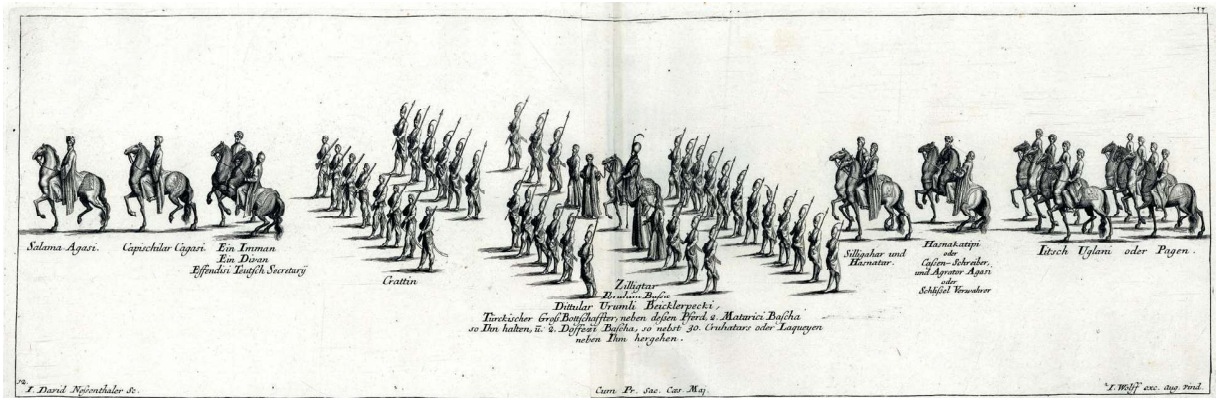 Salama Agasi.
Capischilar Cagasi.
Ein Imman
Ein Divan
Effendisi Teutsch Secretarÿ
Crattin
Zilligtar
Ibrahim Bassa
Dittular Urumli Beicklerpecki,
Türckischer Groß Bottschaffter, neben deßen Pferd, 2. Matarici Bascha
so Ihn halten, ü. 2. Döffexi Bascha, so nebst 30. Cruhatars oder Laqueyen
neben Ihm hergehen.
Silligahar und
Hasnatar.
Hasnakatipi
oder
Caßen-Schreiber,
und Agrator Agasi
oder
Schlißel Verwahrer
Iitsch Uglani oder Pagen.
12.
I. David Neßenthaler sc.
Cum Pr. sac. Cæs Maj.
I. Wolff exc. aug. vind.